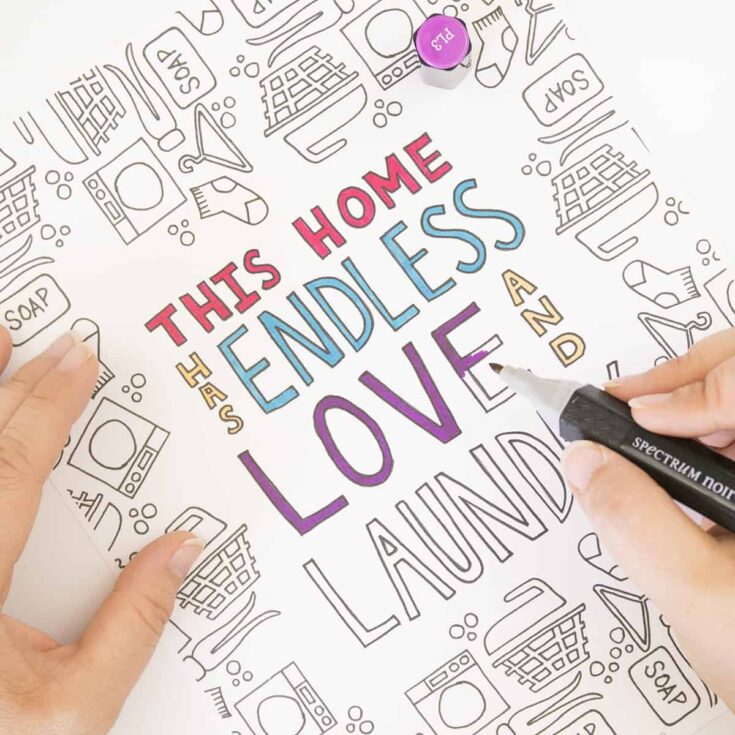 PL3
SOAP
SOAP
SOAP
THIS HOME
HAS ENDLESS AND
LOVE
LAUNDR
SPECTRUM NOIR
SOAP